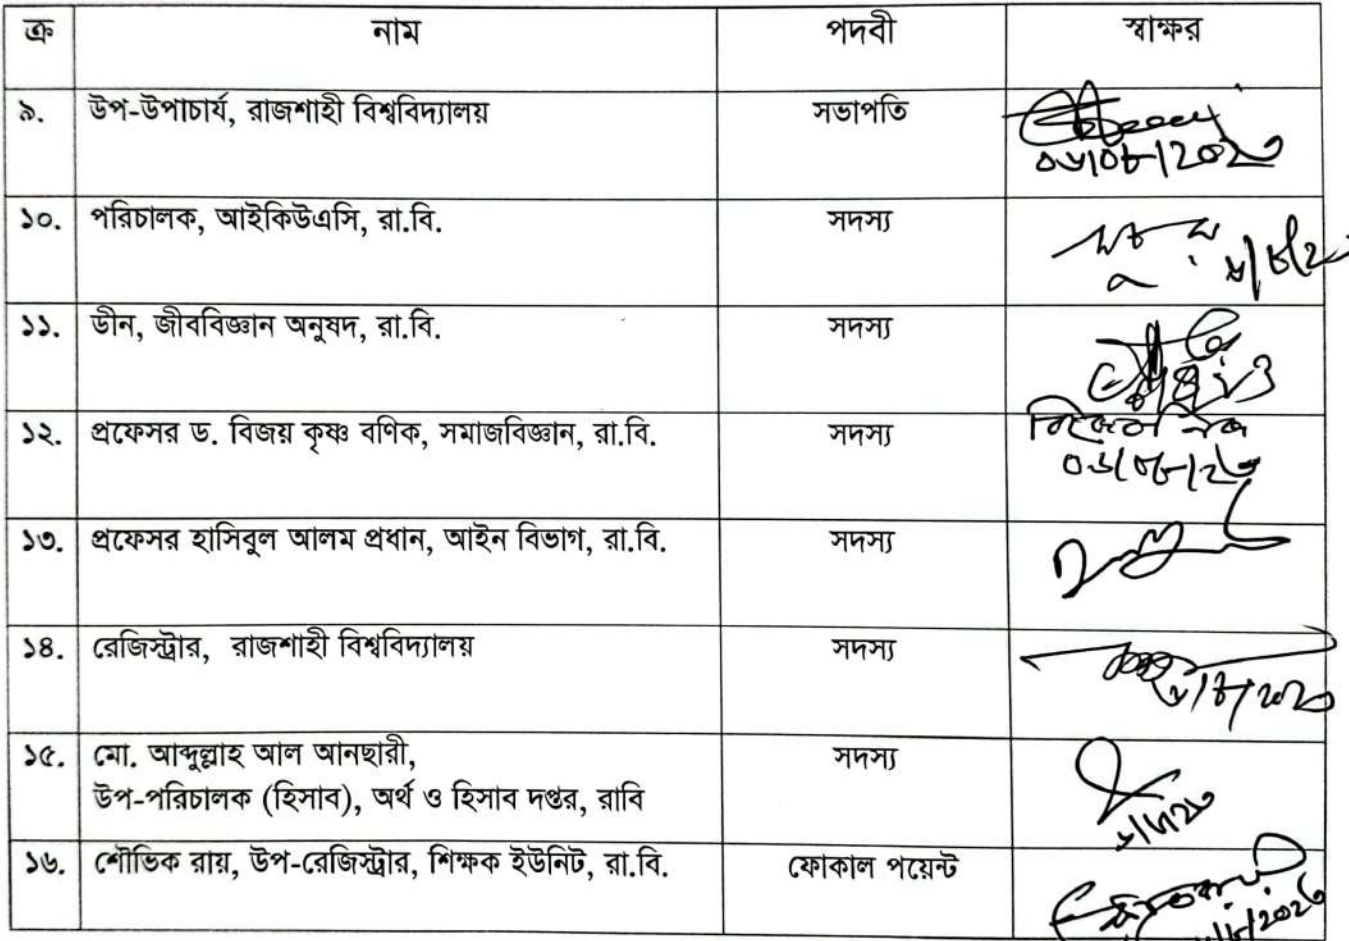 ক্র নাম পদবী স্বাক্ষর
৯. উপ-উপাচার্য, রাজশাহী বিশ্ববিদ্যালয় সভাপতি
০৬/০৮/২০২৩
১০. পরিচালক, আইকিউএসি, রা.বি. সদস্য
১১. ডীন, জীববিজ্ঞান অনুষদ, রা.বি. সদস্য
১২. প্রফেসর ড. বিজয় কৃষ্ণ বণিক, সমাজবিজ্ঞান, রা.বি. সদস্য
০৬/০৮/২৩
১৩. প্রফেসর হাসিবুল আলম প্রধান, আইন বিভাগ, রা.বি. সদস্য
১৪. রেজিস্ট্রার, রাজশাহী বিশ্ববিদ্যালয় সদস্য
১৫. মো. আব্দুল্লাহ আল আনছারী, সদস্য
উপ-পরিচালক (হিসাব), অর্থ ও হিসাব দপ্তর, রাবি
১৬. শৌভিক রায়, উপ-রেজিস্ট্রার, শিক্ষক ইউনিট, রা.বি. ফোকাল পয়েন্ট